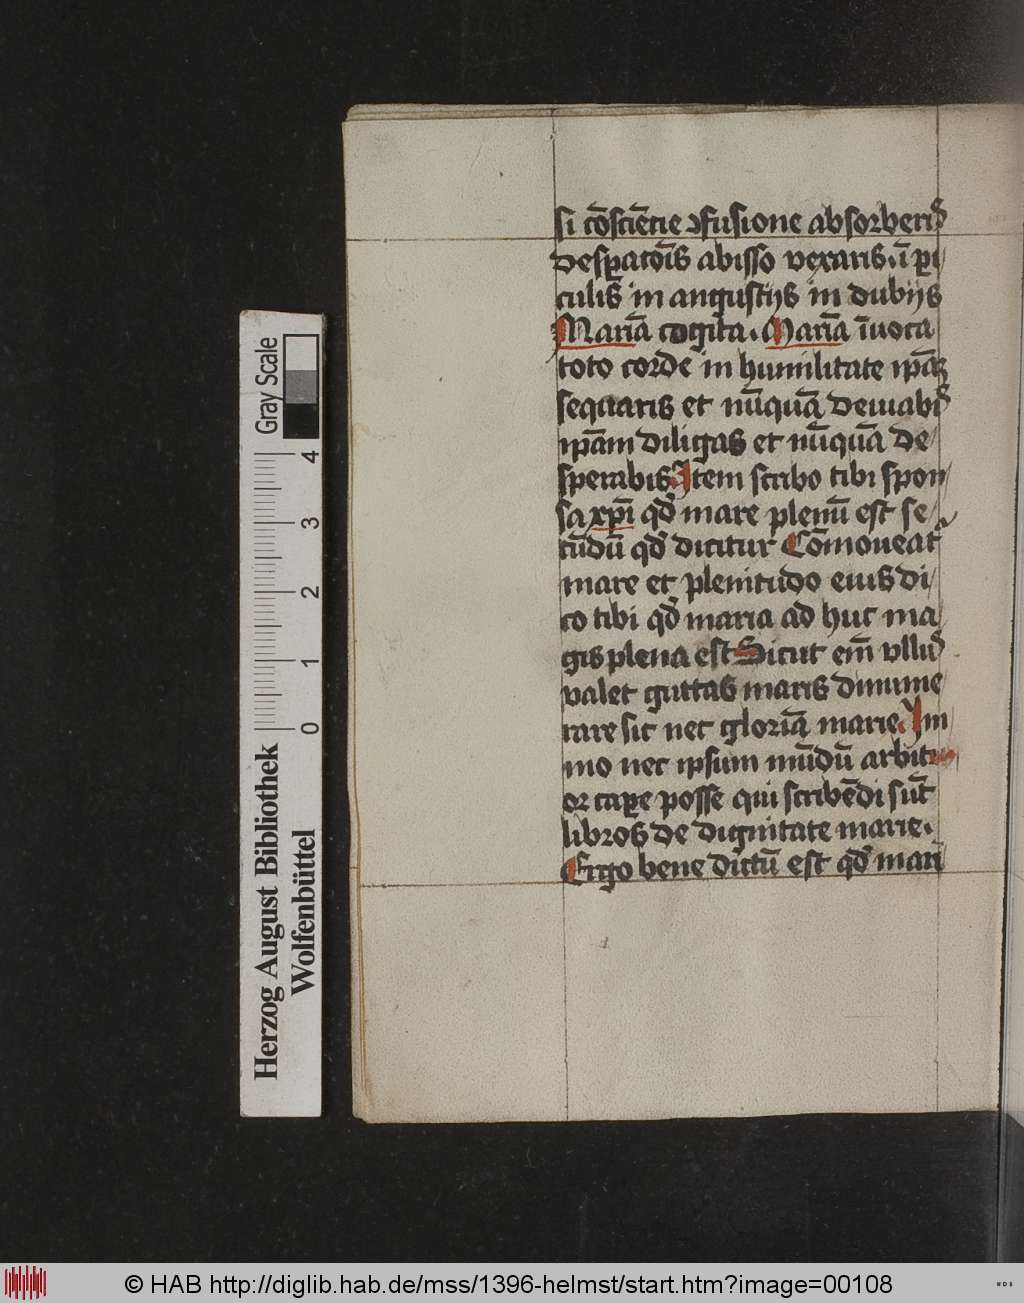 si cōsciētie ꝯfusione absorberis
desꝑatōis abisso vexaris. ī ꝑi
culis in angustijs in dubijs
Mariā cogita. Mariā īuoca
toto corde in humilitate ip̄aꝫ
sequaris et nūquā deuiabis
ip̄am diligas et nūquā de/
sperabis. Item scribo tibi spon/
sa xp̄i qd̓ mare plenū est se/
cūdū qd̓ dicitur Cōmoueat᷑
mare et plenitudo eius di/
co tibi qd̓ maria ad huc ma
gis plena est Sicut em̄ vllus
valet guttas maris dinume
rare sic nec gloriā marie. Im/
mo nec ipsum mūdū arbitr
or caꝑe posse qui scribēdi sūt
libros de dignitate marie.
Ergo bene dictū est qd̓ mari
Gray Scale
4
3
2
1
0
Herzog August Bibliothek
Wolfenbüttel
© HAB http://diglib.hab.de/mss/1396-helmst/start.htm?image=00108
WDB